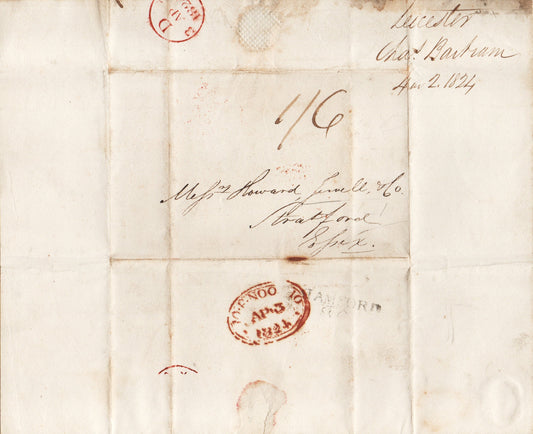 Leicester
Chas. Bartram
4 mo 2. 1824
D
AP
182
1/6
Messrs. Howard Jewell & Co.
Stratford
Essex.
10.F.NOO
AP.3
1824
TAMFORD